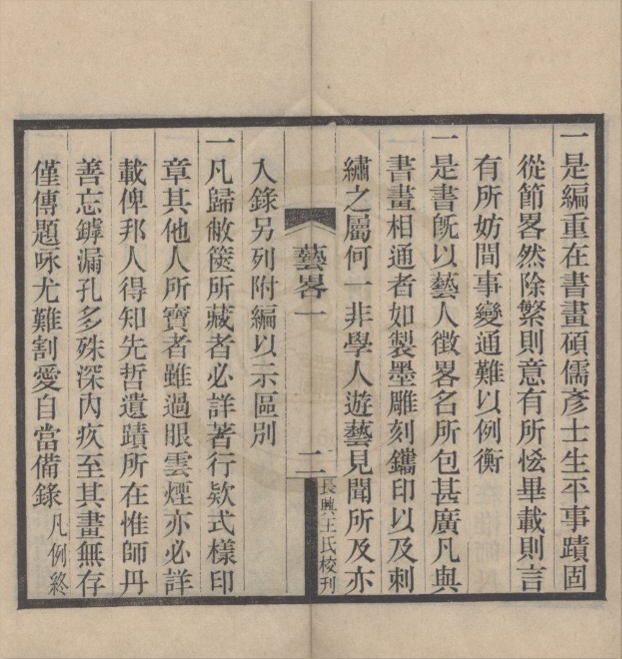 一是編重在書畫碩儒彥士生平事蹟固
從節畧然除繁則意有所恡畢載則言
有所妨間事變通難以例衡
一是書旣以藝人徵畧名所包甚廣凡與
書畫相通者如製墨雕刻鐫印以及刺
繡之屬何一非學人遊藝見聞所及亦
藝畧一
二
長興王氏校刊
入錄另列附編以示區別
一凡歸敝篋所藏者必詳著行欵式樣印
章其他人所寶者雖過眼雲煙亦必詳
載俾邦人得知先哲遺蹟所在惟師丹
善忘罅漏孔多殊深內疚至其畫無存
僅傳題咏尤難割愛自當備錄
凡例終